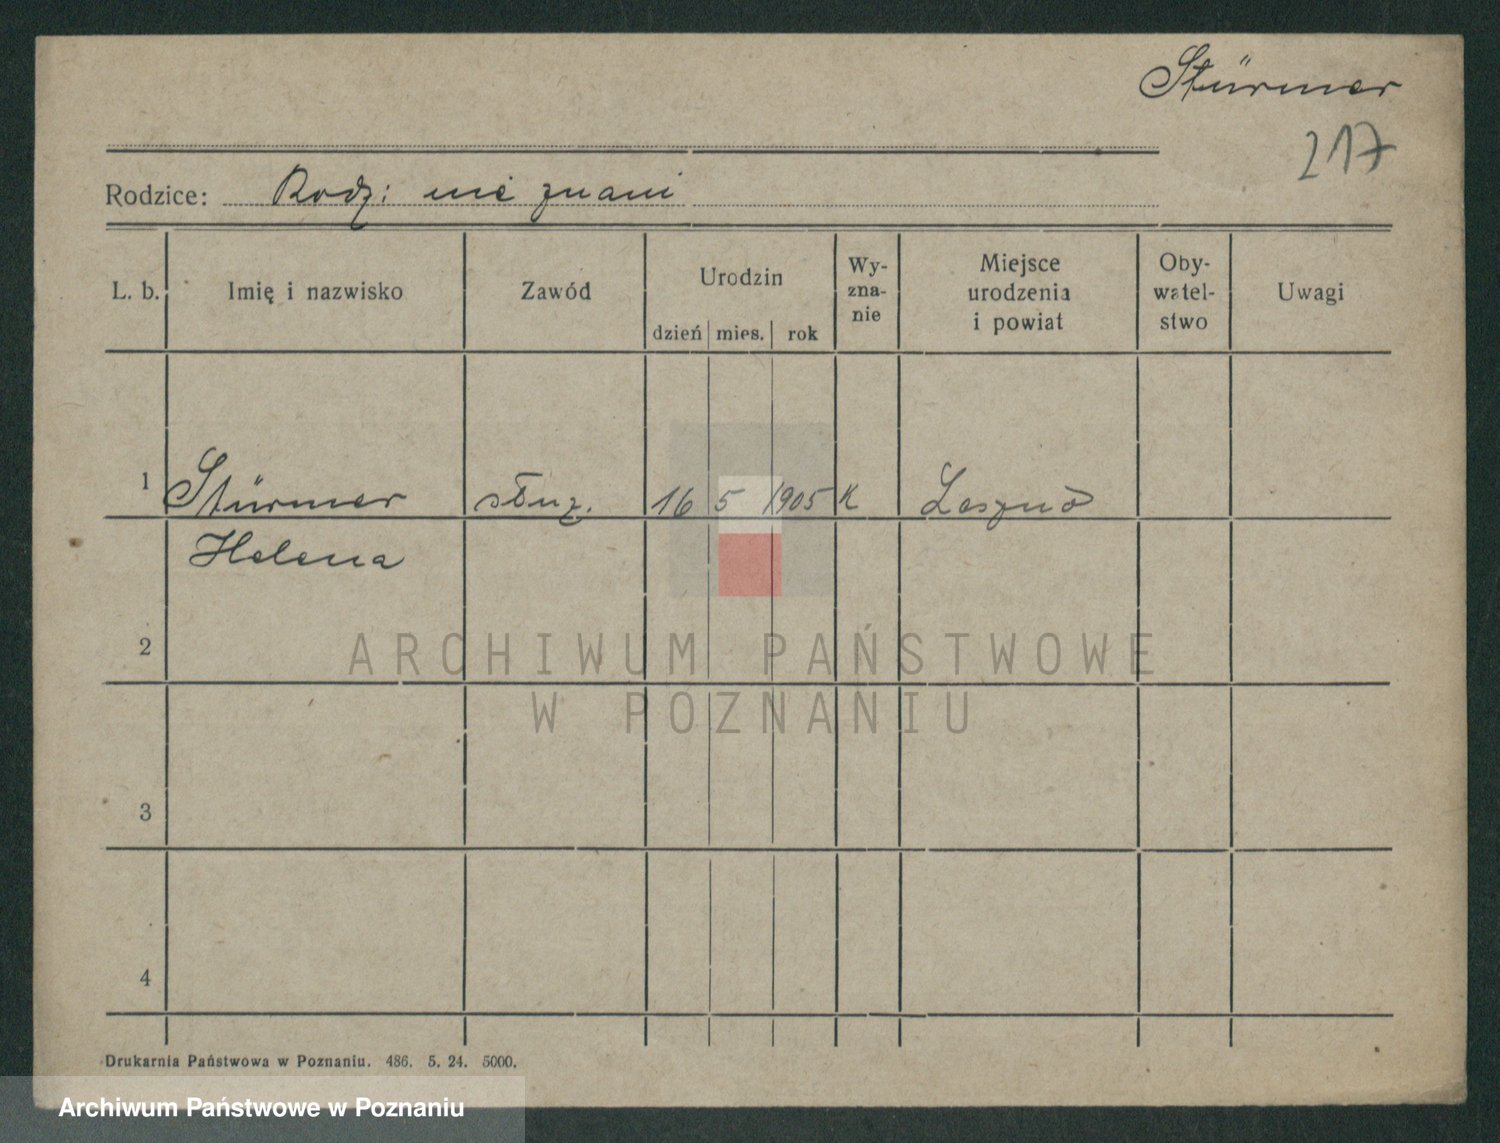 Stürmer
217
Rodzice: Rodz: nie znani
L. b. Imię i nazwisko Zawód Urodzin dzień mies. rok Wy-zna-nie Miejsce urodzenia i powiat Oby-watel-stwo Uwagi
1 Stürmer służ. 16 5 1905 K Leszno
Helena
2
3
4
Drukarnia Państwowa w Poznaniu. 486. 5. 24. 5000.
ARCHIWUM PAŃSTWOWE
W POZNANIU
Archiwum Państwowe w Poznaniu